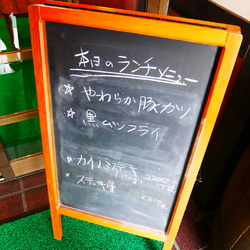 本日のランチメニュー
☆ やわらか豚カツ
☆ 黒ムツフライ
☆ カイノミステーキ
☆ ステーキ重